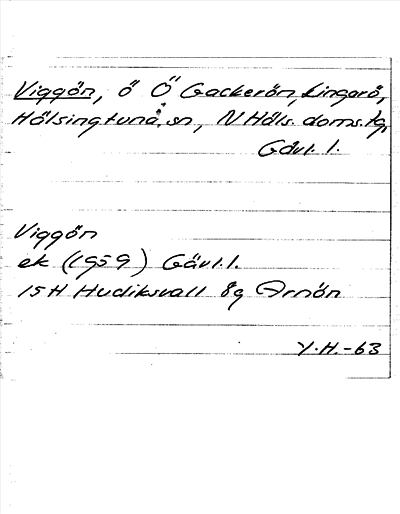 Viggön, ö Ö Gackerön, Lingarö,
Hälsingtuna sn, N Häls. doms.tg,
Gävl. l.
Viggön
ek (1959) Gävl. l.
15H Hudiksvall 8g Arnön
Y.H.-63